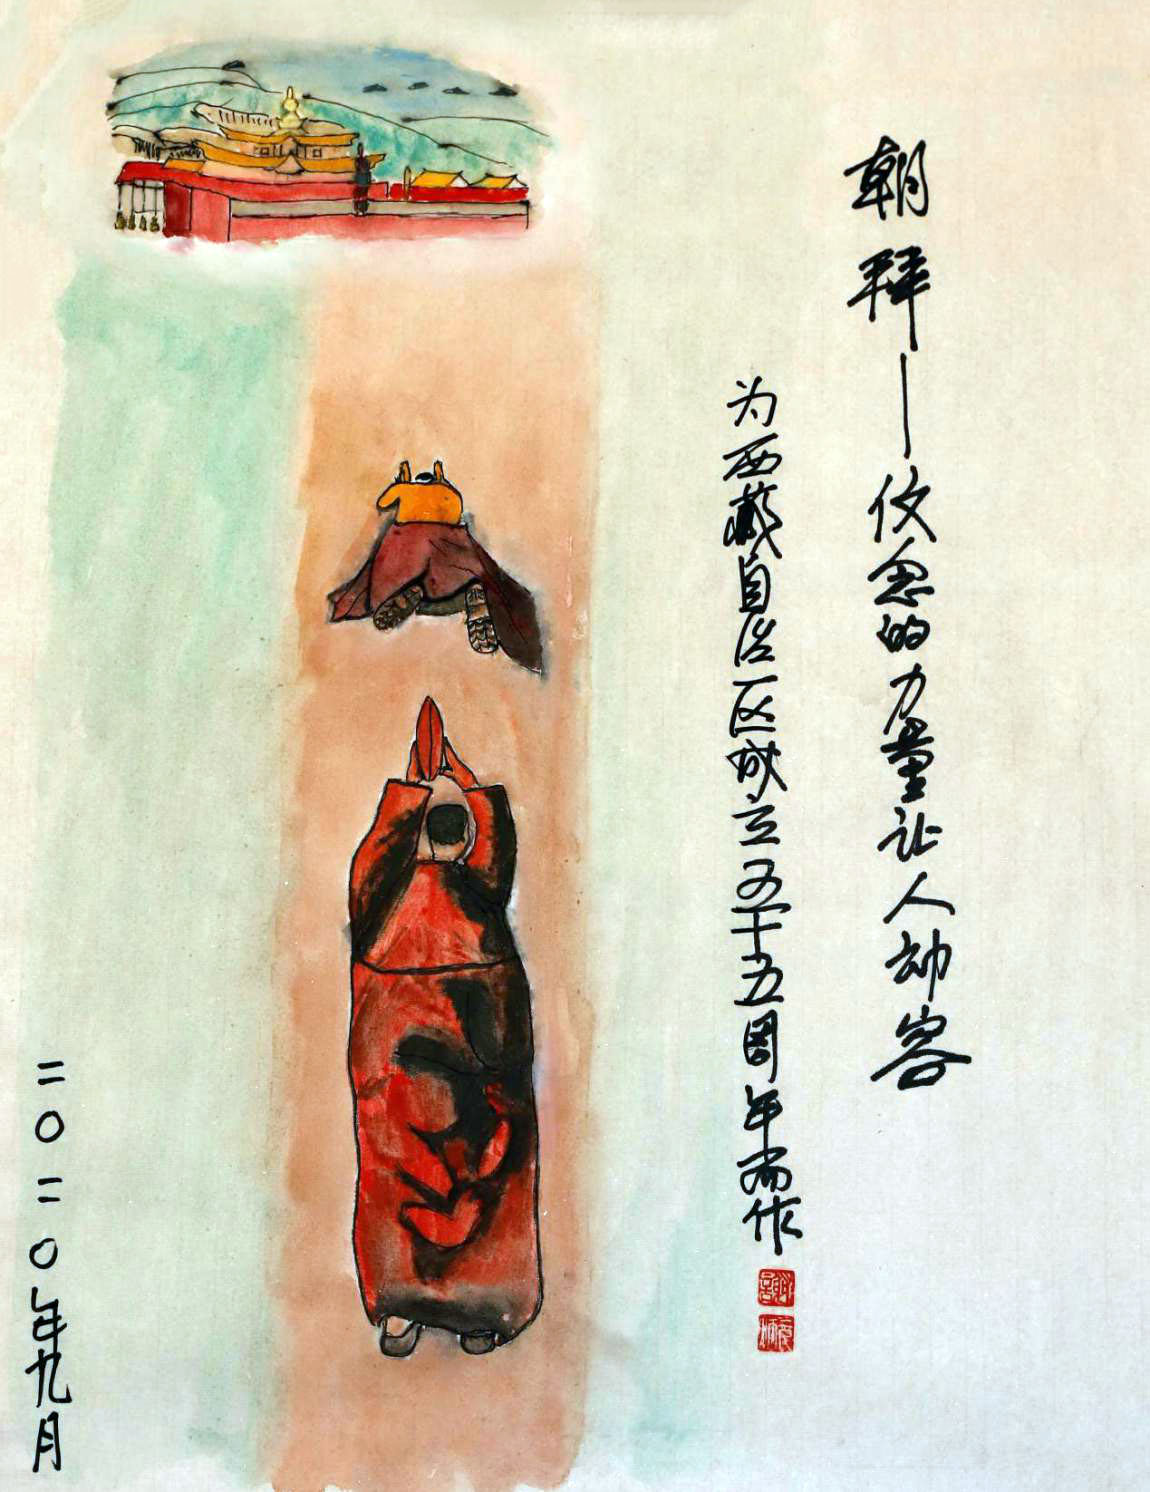 朝拜——伩念的力量让人动容
为西藏自治区成立五十五周年而作
二〇二〇年九月